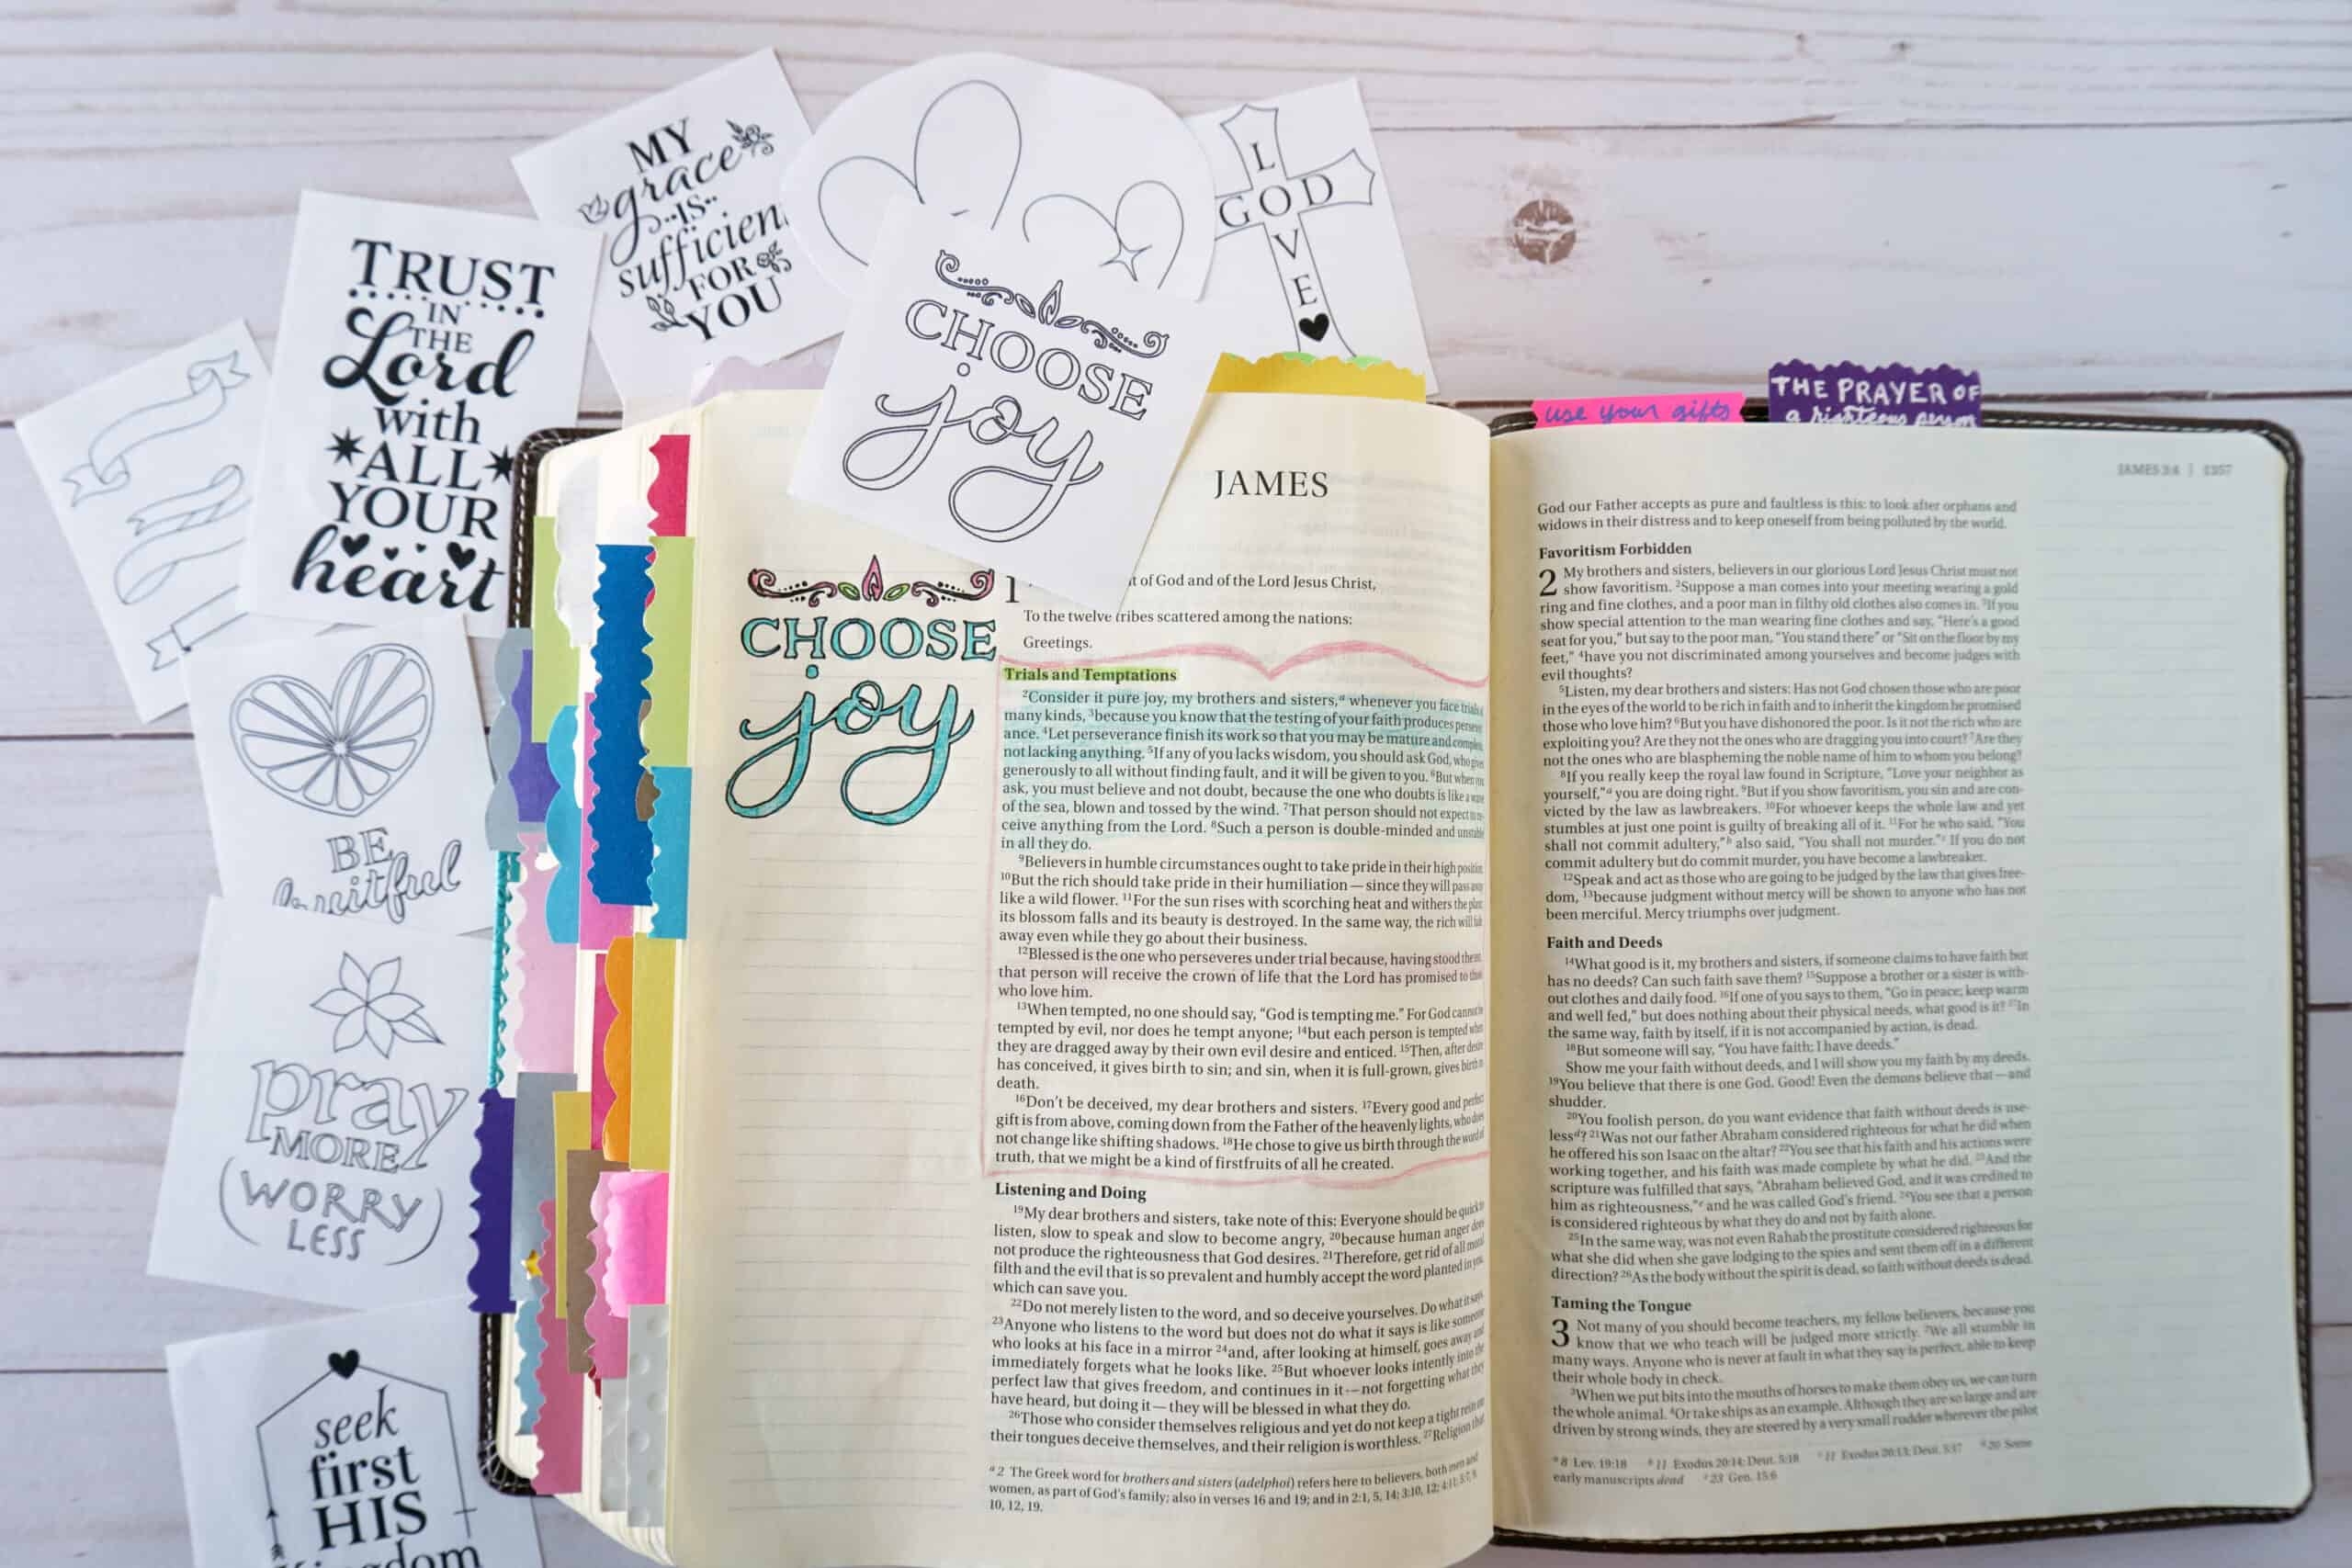 MY
grace
IS
sufficien
FOR
YOU
TRUST
IN
THE
Lord
with
ALL
YOUR
heart
L
GOD
V
E
CHOOSE
joy
BE
fruitful
pray
MORE
(WORRY
LESS)
seek
first
HIS
use your gifts
THE PRAYER OF
a righteous person
JAMES
CHOOSE
joy
1
t of God and of the Lord Jesus Christ,
To the twelve tribes scattered among the nations:
Greetings.
Trials and Temptations
2Consider it pure joy, my brothers and sisters,a whenever you face trials
many kinds, 3because you know that the testing of your faith produces persever
ance. 4Let perseverance finish its work so that you may be mature and complete,
not lacking anything. 5If any of you lacks wisdom, you should ask God, who gives
generously to all without finding fault, and it will be given to you. 6But when you
ask, you must believe and not doubt, because the one who doubts is like a wave
of the sea, blown and tossed by the wind. 7That person should not expect to re-
ceive anything from the Lord. 8Such a person is double-minded and unstable
in all they do.
9Believers in humble circumstances ought to take pride in their high position.
10But the rich should take pride in their humiliation — since they will pass away
like a wild flower. 11For the sun rises with scorching heat and withers the plant
its blossom falls and its beauty is destroyed. In the same way, the rich will fade
away even while they go about their business.
12Blessed is the one who perseveres under trial because, having stood the test,
that person will receive the crown of life that the Lord has promised to those
who love him.
13When tempted, no one should say, “God is tempting me.” For God cannot be
tempted by evil, nor does he tempt anyone; 14but each person is tempted when
they are dragged away by their own evil desire and enticed. 15Then, after desire
has conceived, it gives birth to sin; and sin, when it is full-grown, gives birth to
death.
16Don’t be deceived, my dear brothers and sisters. 17Every good and perfect
gift is from above, coming down from the Father of the heavenly lights, who does
not change like shifting shadows. 18He chose to give us birth through the word of
truth, that we might be a kind of firstfruits of all he created.
Listening and Doing
19My dear brothers and sisters, take note of this: Everyone should be quick to
listen, slow to speak and slow to become angry, 20because human anger does
not produce the righteousness that God desires. 21Therefore, get rid of all moral
filth and the evil that is so prevalent and humbly accept the word planted in you,
which can save you.
22Do not merely listen to the word, and so deceive yourselves. Do what it says.
23Anyone who listens to the word but does not do what it says is like someone
who looks at his face in a mirror 24and, after looking at himself, goes away and
immediately forgets what he looks like. 25But whoever looks intently into the
perfect law that gives freedom, and continues in it — not forgetting what they
have heard, but doing it — they will be blessed in what they do.
26Those who consider themselves religious and yet do not keep a tight rein on
their tongues deceive themselves, and their religion is worthless. 27Religion that
a 2 The Greek word for brothers and sisters (adelphoi) refers here to believers, both men and
women, as part of God’s family; also in verses 16 and 19; and in 2:1, 5, 14; 3:10, 12; 4:11; 5:7, 9,
10, 12, 19.
JAMES 3:4 | 1357
God our Father accepts as pure and faultless is this: to look after orphans and
widows in their distress and to keep oneself from being polluted by the world.
Favoritism Forbidden
2 My brothers and sisters, believers in our glorious Lord Jesus Christ must not
show favoritism. 2Suppose a man comes into your meeting wearing a gold
ring and fine clothes, and a poor man in filthy old clothes also comes in. 3If you
show special attention to the man wearing fine clothes and say, “Here’s a good
seat for you,” but say to the poor man, “You stand there” or “Sit on the floor by my
feet,” 4have you not discriminated among yourselves and become judges with
evil thoughts?
5Listen, my dear brothers and sisters: Has not God chosen those who are poor
in the eyes of the world to be rich in faith and to inherit the kingdom he promised
those who love him? 6But you have dishonored the poor. Is it not the rich who are
exploiting you? Are they not the ones who are dragging you into court? 7Are they
not the ones who are blaspheming the noble name of him to whom you belong?
8If you really keep the royal law found in Scripture, “Love your neighbor as
yourself,”a you are doing right. 9But if you show favoritism, you sin and are con-
victed by the law as lawbreakers. 10For whoever keeps the whole law and yet
stumbles at just one point is guilty of breaking all of it. 11For he who said, “You
shall not commit adultery,”b also said, “You shall not murder.”c If you do not
commit adultery but do commit murder, you have become a lawbreaker.
12Speak and act as those who are going to be judged by the law that gives free-
dom, 13because judgment without mercy will be shown to anyone who has not
been merciful. Mercy triumphs over judgment.
Faith and Deeds
14What good is it, my brothers and sisters, if someone claims to have faith but
has no deeds? Can such faith save them? 15Suppose a brother or a sister is with-
out clothes and daily food. 16If one of you says to them, “Go in peace; keep warm
and well fed,” but does nothing about their physical needs, what good is it? 17In
the same way, faith by itself, if it is not accompanied by action, is dead.
18But someone will say, “You have faith; I have deeds.”
Show me your faith without deeds, and I will show you my faith by my deeds.
19You believe that there is one God. Good! Even the demons believe that — and
shudder.
20You foolish person, do you want evidence that faith without deeds is use-
lessd? 21Was not our father Abraham considered righteous for what he did when
he offered his son Isaac on the altar? 22You see that his faith and his actions were
working together, and his faith was made complete by what he did. 23And the
scripture was fulfilled that says, “Abraham believed God, and it was credited to
him as righteousness,”e and he was called God’s friend. 24You see that a person
is considered righteous by what they do and not by faith alone.
25In the same way, was not even Rahab the prostitute considered righteous for
what she did when she gave lodging to the spies and sent them off in a different
direction? 26As the body without the spirit is dead, so faith without deeds is dead.
Taming the Tongue
3 Not many of you should become teachers, my fellow believers, because you
know that we who teach will be judged more strictly. 2We all stumble in
many ways. Anyone who is never at fault in what they say is perfect, able to keep
their whole body in check.
3When we put bits into the mouths of horses to make them obey us, we can turn
the whole animal. 4Or take ships as an example. Although they are so large and are
driven by strong winds, they are steered by a very small rudder wherever the pilot
a 8 Lev. 19:18 b 11 Exodus 20:14; Deut. 5:18 c 11 Exodus 20:13; Deut. 5:17 d 20 Some
early manuscripts dead e 23 Gen. 15:6